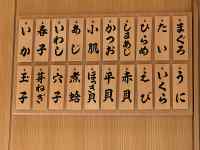 まぐろ
たい
ひらめ
しまあじ
かつお
小肌
あじ
いわし
春子
いか
うに
いくら
えび
赤貝
平貝
ほっき貝
煮蛤
穴子
芽ねぎ
玉子